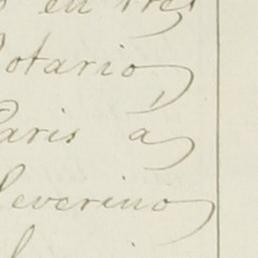 en tres
Notario
Paris a
Severino